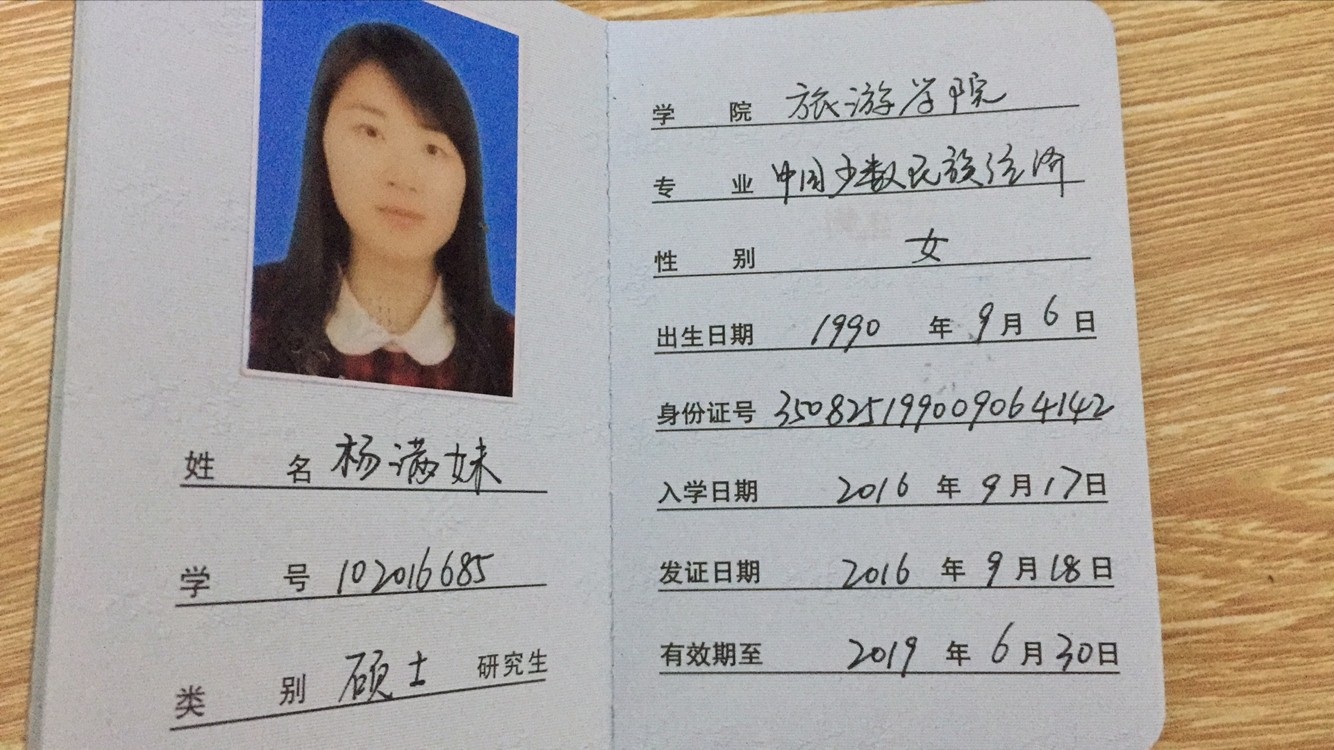 姓 名 杨满妹
学 号 102016685
类 别 硕士 研究生
学 院 旅游学院
专 业 中国少数民族经济
性 别 女
出生日期 1990 年 9 月 6 日
身份证号 350825199009064142
入学日期 2016 年 9 月 17 日
发证日期 2016 年 9 月 18 日
有效期至 2019 年 6 月 30 日